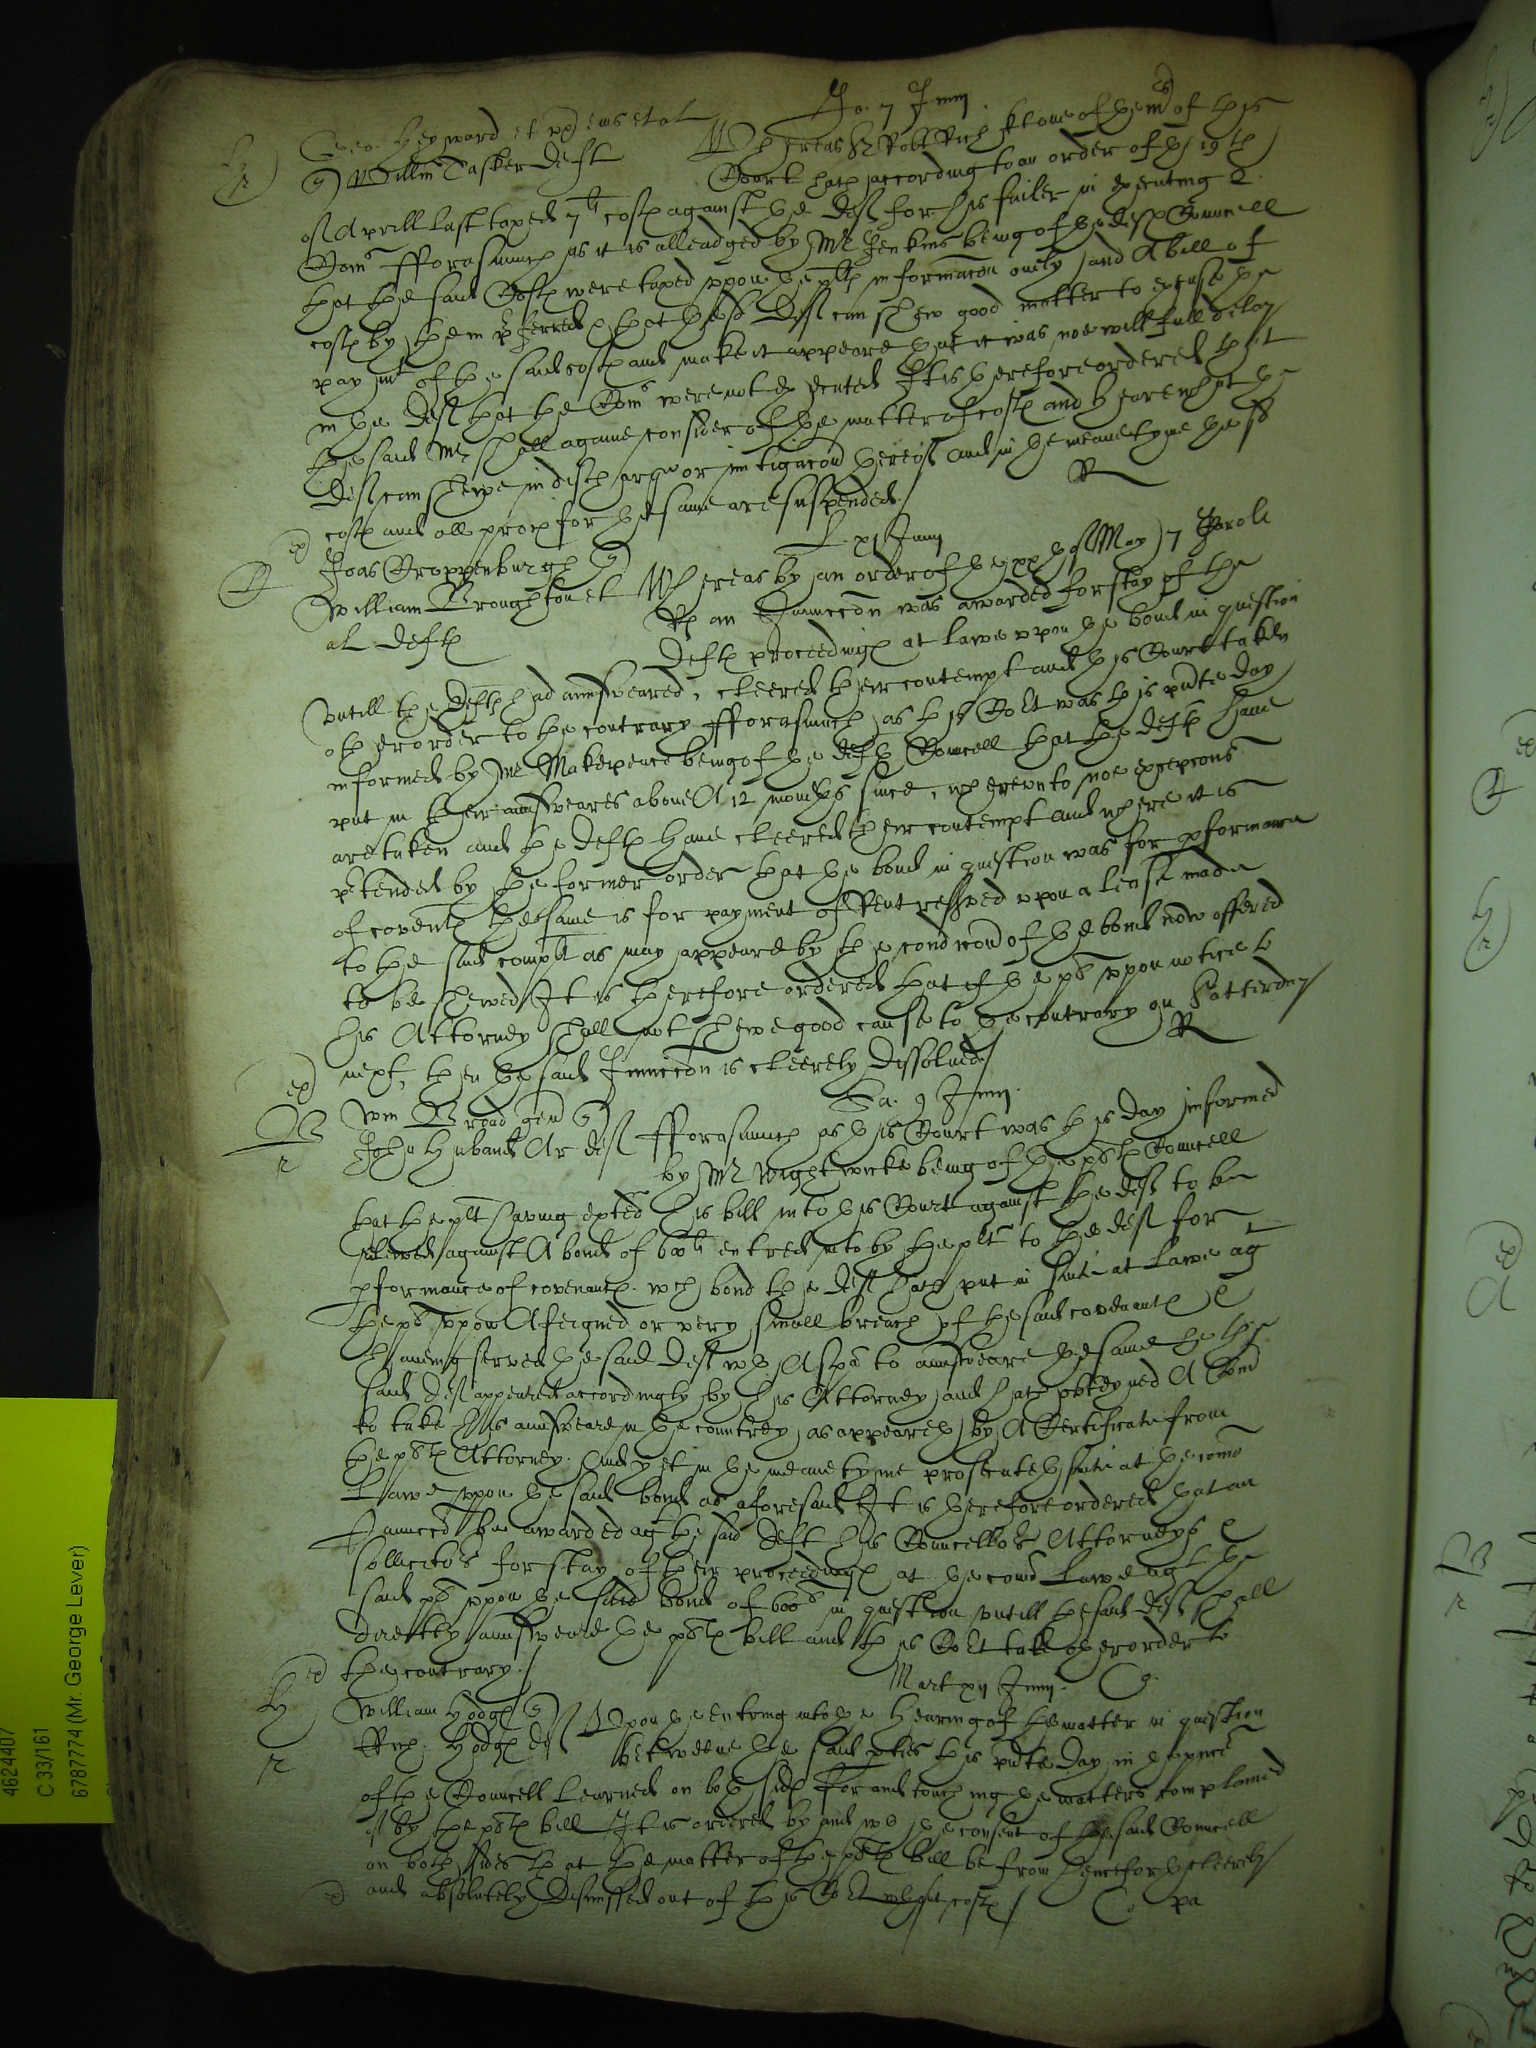 Jo. 7 Junij.
Geo. Heyward et ux eius et al
Willm Tasker deft
Whereas Sr Robt Rich kt one of the mrs of this
Court hath according to an order of the 19th
of Aprill last taxed 7li costs against the deft for his failer in executing a
Coms fforasmuch as it is alleadged by Mr Jenkins being of the defts Councell
that the said Costs were taxed vppon the plts informacon onely and A bill of
costs by them pferred & that the sd Deft can shew good matter to excuse the
paymt of the said costs and make it appeare that it was noe willfull delay
in the Deft that the Coms were not executed It is therefore ordered that
the said Mr shall againe consider of the matter of costs and heare what the
Deft can shewe in discharge or mitigacon thereof and in the meane tyme the sd
costs and all proces for the same are suspended
R
L xj Junij
Joas Croppenburgh
William Broughton et
al defts
Whereas by an order of the xxth of May 7 Caroli
Rs an Iniunccon was awarded for stay of the
Defts proceedings at lawe vpon the bond in question
vntill the Defts had answeared, cleered their contempt and this Court taken
other order to the contrary fforasmuch as this Cort was this pnte day
informed by Mr Makepeace being of the defts Councell that the defts haue
put in their answeares aboue A 12 moneths since, whereunto noe excepcons
are taken and the Defts haue cleered their contempt and where it is
ptended by the former order that the bond in question was for pformance
of covents the same is for payment of Rent reserved vpon a lease made
to the said complt as may appeare by the condicon of the bond now offered
to be shewed It is therefore ordered that if the pt vppon notice to
his Attorney shall not shewe good cause to the contrary on Satterday
next, then the said Iniunccon is cleerely dissolued
R
Sa. 9 Junij.
Wm Broad gen
John Huband Ar deft
fforasmuch as this Court was this day informed
by Mr Wightwicke being of the plts Councell
that the plt having exted his bill into this Court against the deft to be
releived against A bond of 600li entred into by the plt to the deft for
pformance of covenants. wch bond the deft hath put in suite at Lawe agt
the plt vppon A feigned or very small breach of the said covenants &
having served the said deft wth A spa to answeare the same he the
said deft appeared accordingly by his Attorney and hath obteyned A Comn
to take his answeare in the countrey, as appeareth by A Certificate from
the plts Attorney. And yet in the meane tyme prosecuteth suite at the comon
Lawe vppon the said bond as aforesaid It is therefore ordered that an
Iniunccon be awarded agt the said deft his Councellors Attorneys &
sollicitors for stay of their proceedings at the comon Lawe agt the
said plt vppon the said bond of 600li in question vntill the said deft shall
directly answeare the plts bill and this Cort take other order to
the contrary.
Mart xij Junij.
William Hodges
Hodges deft
Vpon the entring into the hearing of the matter in question
betweene the said pties this pnte day in the pnce
of the Councell Learned on both sides For and touching the matters complained
of by the plts bill It is ordered by and wth the consent of the said Councell
on both sides that the matter of the plts bill be from henceforth cleerely
and absolutely dismissed out of this Cort without costs
4624407
C 33/161
6787774 (Mr. George Lever)